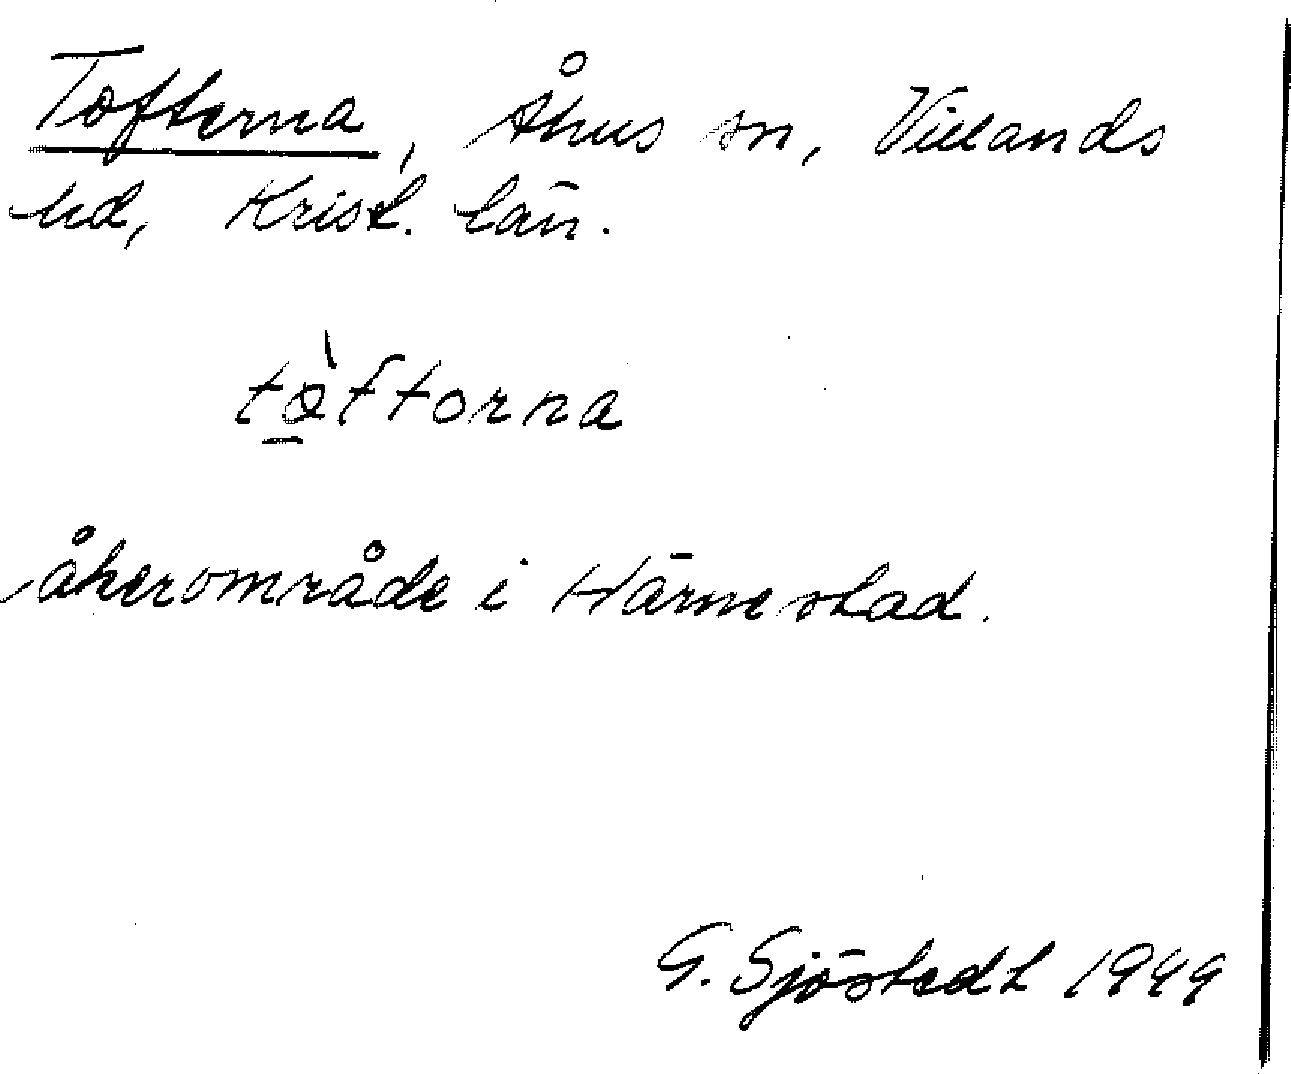 Tofterna, Åhus sn, Villands
hd, Krist. län.
tò̱ftorna
åkerområde i Härnestad.
G. Sjöstedt 1949